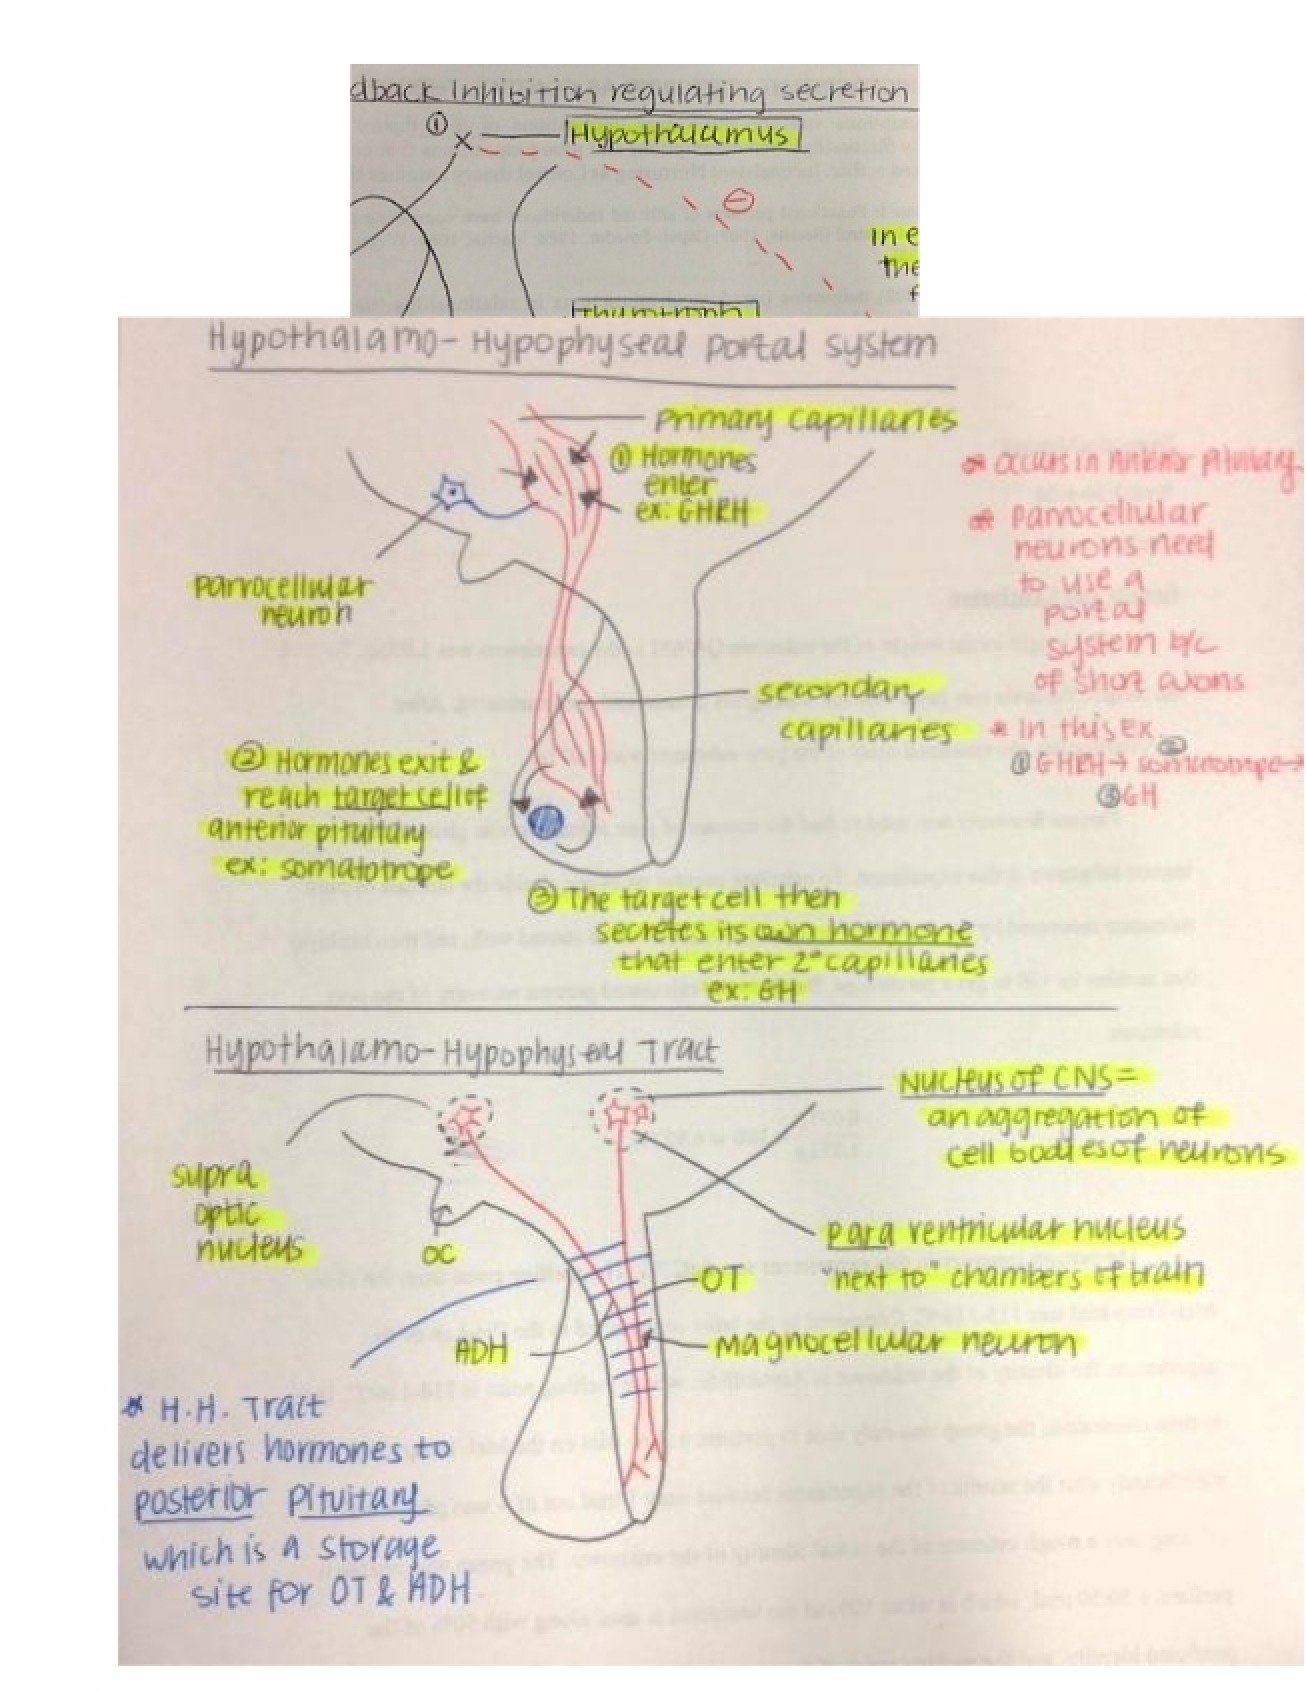 dback Inhibition regulating secretion
① X
Hypothalamus
⊖
in e
the
f
Thyrotroph
Hypothalamo-Hypophyseal Portal System
Primary Capillaries
① Hormones
enter
ex: GHRH
Parvocellular
neuron
* occurs in Anterior Pituitary
* Parvocellular
neurons need
to use a
portal
system b/c
of short axons
secondary
capillaries
* In this Ex.
① GHRH → ② somatotrope →
③ GH
② Hormones exit &
reach target cell of
anterior pituitary
ex: somatotrope
③ The target cell then
secretes its own hormone
that enter 2° capillaries
ex: GH
Hypothalamo-Hypophyseal Tract
Nucleus of CNS =
an aggregation of
cell bodies of neurons
supra
optic
nucleus
OC
Para ventricular nucleus
"next to" chambers of brain
OT
ADH
Magnocellular neuron
* H.H. Tract
delivers hormones to
posterior pituitary
which is a storage
site for OT & ADH.